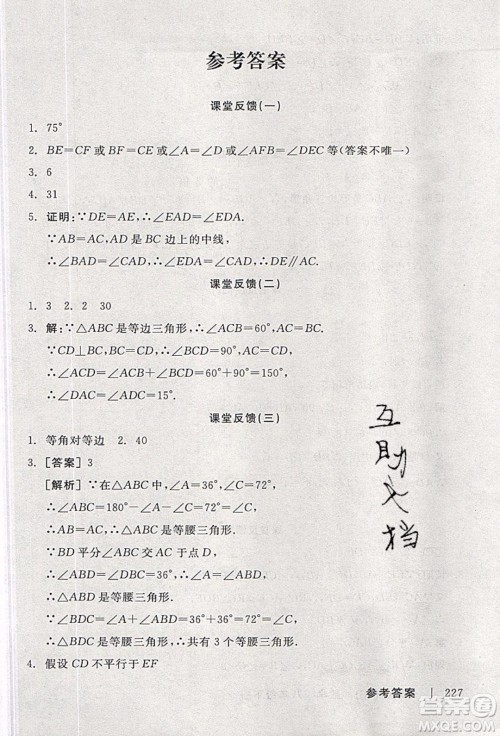 参考答案
课堂反馈(一)
1. 75°
2. BE=CF 或 BF=CE 或∠A=∠D 或∠AFB=∠DEC 等(答案不唯一)
3. 6
4. 31
5. 证明:∵DE=AE,∴∠EAD=∠EDA.
∵AB=AC,AD 是 BC 边上的中线,
∴∠BAD=∠EAD,∴∠BAD=∠EDA,∴DE∥AB.
课堂反馈(二)
1. 3 2. 2 30
3. 解:∵△ABC 是等边三角形,∴∠ACB=60°,AC=BC.
∵CD⊥BC,CD=BC,∴∠BCD=90°,AC=CD,
∴∠ACD=∠ACB+∠BCD=60°+90°=150°,
∴∠DAC=∠ADC=15°.
课堂反馈(三)
1. 等角对等边 2. 40
3. [答案] 3
[解析] ∵在△ABC 中,∠A=36°,∠C=72°,
∴∠ABC=180°-∠A-∠C=72°=∠C,
∴△ABC 是等腰三角形.
∵BD 平分∠ABC 交 AC 于点 D,
∴∠ABD=∠DBC=36°,∴∠A=∠ABD=36°,
∴△ABD 是等腰三角形.
∵∠BDC=∠A+∠ABD=36°+36°=72°=∠C,
∴△BDC 是等腰三角形,∴共有 3 个等腰三角形.
4. 假设 CD 不平行于 EF
互助文档
参考答案 | 227